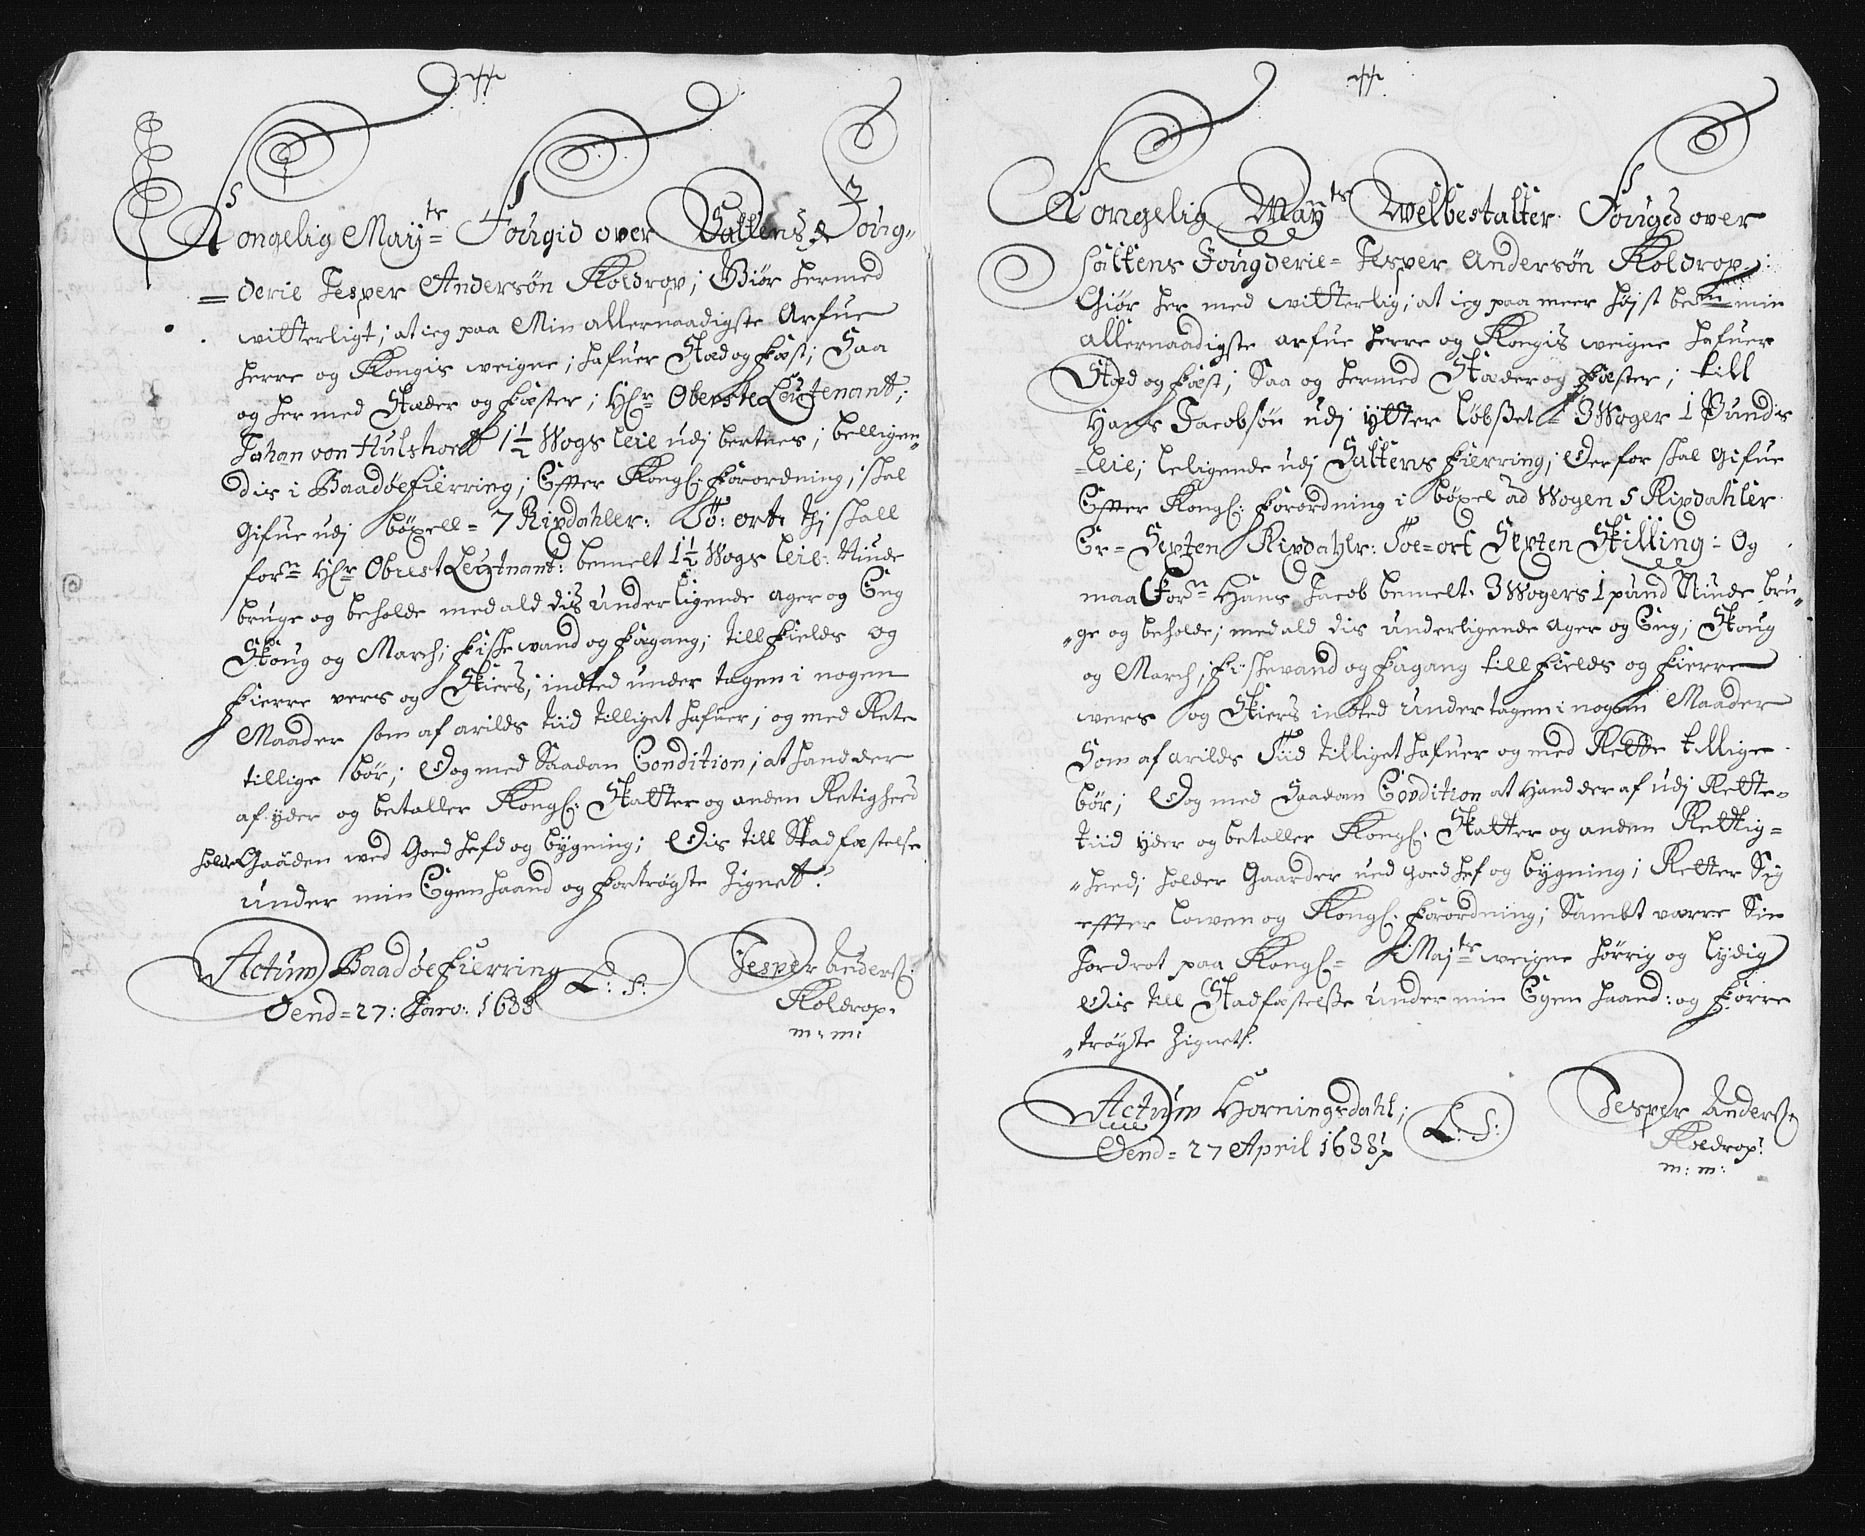 Kongelig May:ts Fougid over Saltens Foug-
=derie Jesper Andersøn Koldrop; Giør hermed
vitterligt; at ieg paa Min allernaadigste Arfue
herre og Kongis weigne; hafuer Stæd og fæst; Saa
og her med Stæder og fæster; Hr: Oberste Leutenant;
Johan von Hulshordt 1½ Wogs leie udj bertnes; belligen-
dis i Baadøefierring; Effter Kongl: forordning; skal
Gifue udj bøxell= 7 Rixdahller: Tö: ort: Thj skall
forn: Hr: Obrest Leutnant: bemelt 1½ Wogs leie: Niude
bruge og beholde med ald dis underligende ager og Eng
Skoug og March; fiske wand og fægang; till fields og
fierre vers og Skiers; indted under tagen i nogen
Maader som af arilds tiid tilliget hafuer; og med Rete
tillige bör; Dog med Saadan Condition; at hand der
af yder og betaller Kongl: Skatter og anden Retigheed
holde Gaarden wed Goed hefd og bygning; Dis till Stadfæstelse
under min Egen haand og fortrøgte Zignett:
Actum Baadöefierring L: S: Jesper Anders:
Dend= 27: Janv: 1688 Koldrop.
m: m:
Kongelig May:ts Welbestalter Fouged over
Saltens Fougderie= Jesper Andersøn Koldrop:
Giør her med vitterlig; at ieg paa meer højst ben: min
allernaadigste arfue herre og Kongis weigne hafuer
Stæd og fæst; Saa og hermed Stæder og fæster; till
Hans Jacobsøn udj ytter löbsset= 3 Woger 1 Punds
=leie; beligende udj Saltens fierring; Derfor skal Gifue
Effter Kongl: forordning i böxel ad Wogen 5 Rixdahler
Er= Sexten Rixdahlr: Toe= ort Sexten Skilling: Og
maa forn: Hans Jacob bemelt. 3 Wogers 1 pund Niude bru-
-ge og beholde; med ald dis underligende ager og Eng; Skoug
og March; fiskevand og fægang till fields og fierre
wers og Skiers indted under tagen i nogen Maader
Som af arilds Tiid tilliget hafuer og med Rette tillige
bör; Dog med Saadan Condition at Hand der af udj Rette-
tiid yder og betaller Kongl: Skatter og anden Rettig=
-heed; holder Gaarder ued goed hef og bygning; Retter Sig
effter lowen og Kongl: forordning; Sambt værre Sin
Jordrot paa Kongl= Maj:ts weigne hörrig og lydig
Dis till Stadfæstelsse under min Egen haand: og forre
-trøgte Zignet:
Actum Horningsdahl; L: S: Jesper Anders:
Dend= 27 April 1688 Koldrop:
m: m: